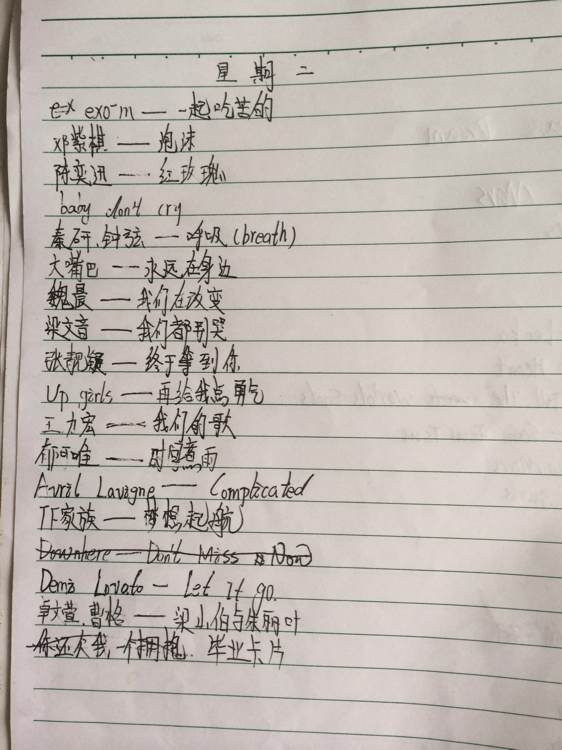 星期二
e-x exo-m —— 一起吃苦的
邓紫棋 —— 泡沫
陈奕迅 —— 红玫瑰
baby don't cry
秦研.钟弦 —— 呼吸(breath)
大嘴巴 —— 永远在身边
魏晨 —— 我们在改变
梁文音 —— 我们都别哭
张靓颖 —— 终于等到你
Up girls —— 再给我点勇气
王力宏 —— 我们的歌
郁可唯 —— 时间煮雨
Avril Lavigne —— Complicated
TF家族 —— 梦想起航
Downhere —— Don't Miss Now
Demi Lovato — Let It go.
卓文萱.曹格 —— 梁山伯与朱丽叶
你还欠我,一个拥抱. 毕业卡片